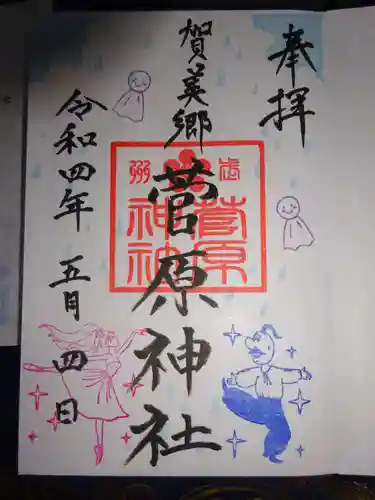 奉拝
賀美郷
菅原神社
令和四年五月四日
菅原
神社